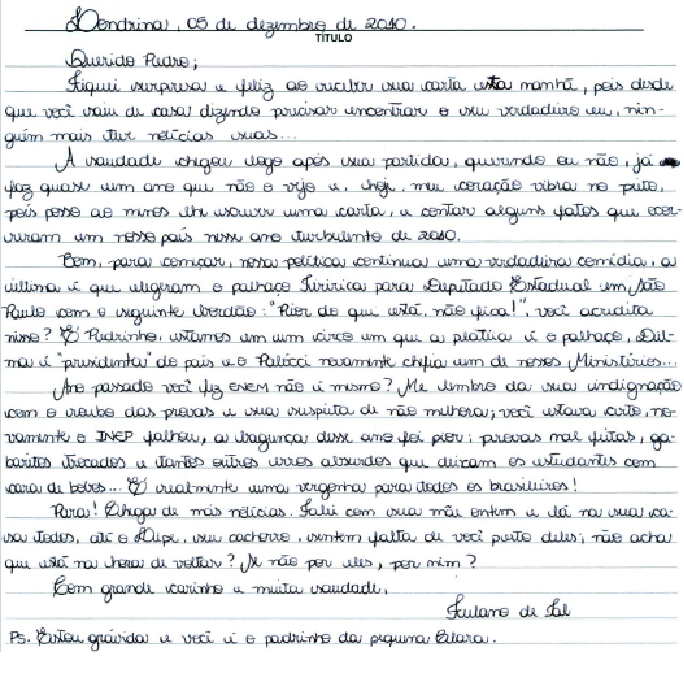 Londrina, 05 de dezembro de 2010.
TÍTULO
Querido Pedro;
Fiquei surpresa e feliz ao receber sua carta esta manhã, pois desde
que você saiu de casa dizendo precisar encontrar o seu verdadeiro eu, nin-
guém mais teve notícias suas...
A saudade chegou logo após sua partida, querendo eu não, já
faz quase um ano que não o vejo e, hoje, meu coração vibra no peito,
pois posso ao menos lhe escrever uma carta, e contar alguns fatos que ocor-
reram em nosso país nesse ano turbulento de 2010.
Bem, para começar, nossa política continua uma verdadeira comédia, a
última é que elegeram o palhaço Tiririca para Deputado Estadual em São
Paulo com o seguinte bordão: "Pior do que está, não fica!", você acredita
nisso? É Pedrinho, estamos em um circo em que a platéia é o palhaço, Dil-
ma é "presidenta" do país e o Palocci novamente chefia um de nossos Ministérios...
Ano passado você fez ENEM não é mesmo? Me lembro da sua indignação
com o roubo das provas e sua suspeita de não melhora; você estava certo, no-
vamente o INEP falhou, a bagunça desse ano foi pior: provas mal feitas, ga-
baritos trocados e tantos outros erros absurdos que deixam os estudantes com
cara de bobos... É realmente uma vergonha para todos os brasileiros!
Para! Chega de más notícias. Falei com sua mãe ontem e lá na sua ca-
sa todos, até o seu cachorro, sentem falta de você perto deles; não acha
que está na hora de voltar? Se não por eles, por mim?
Com grande carinho e muita saudade,
Fulano de Tal
Ps. Estou grávida e você é o padrinho da pequena Clara.